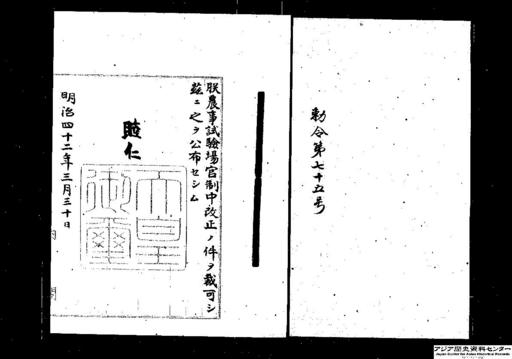 勅令第七十五号
朕農事試驗場官制中改正ノ件ヲ裁可シ
茲ニ之ヲ公布セシム
睦仁
天皇御璽
明治四十二年三月三十日
内閣
アジア歴史資料センター
Japan Center for Asian Historical Records